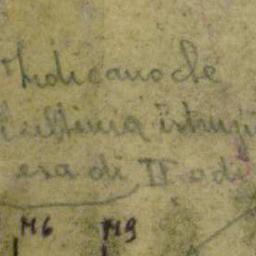 Indicano che
l'ultima istruzi
era di II o di
M6 M9